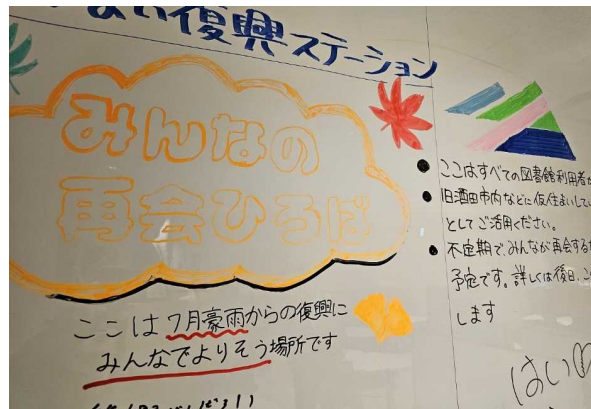 い復興ステーション
みんなの
再会ひろば
ここは7月豪雨からの復興に
みんなでよりそう場所です
● ここはすべての図書館利用者
● 旧酒田市内などに仮住まいしてい
としてご活用ください。
● 不定期で、みんなが再会する
予定です。詳しくは後日、こ
します
はい♡